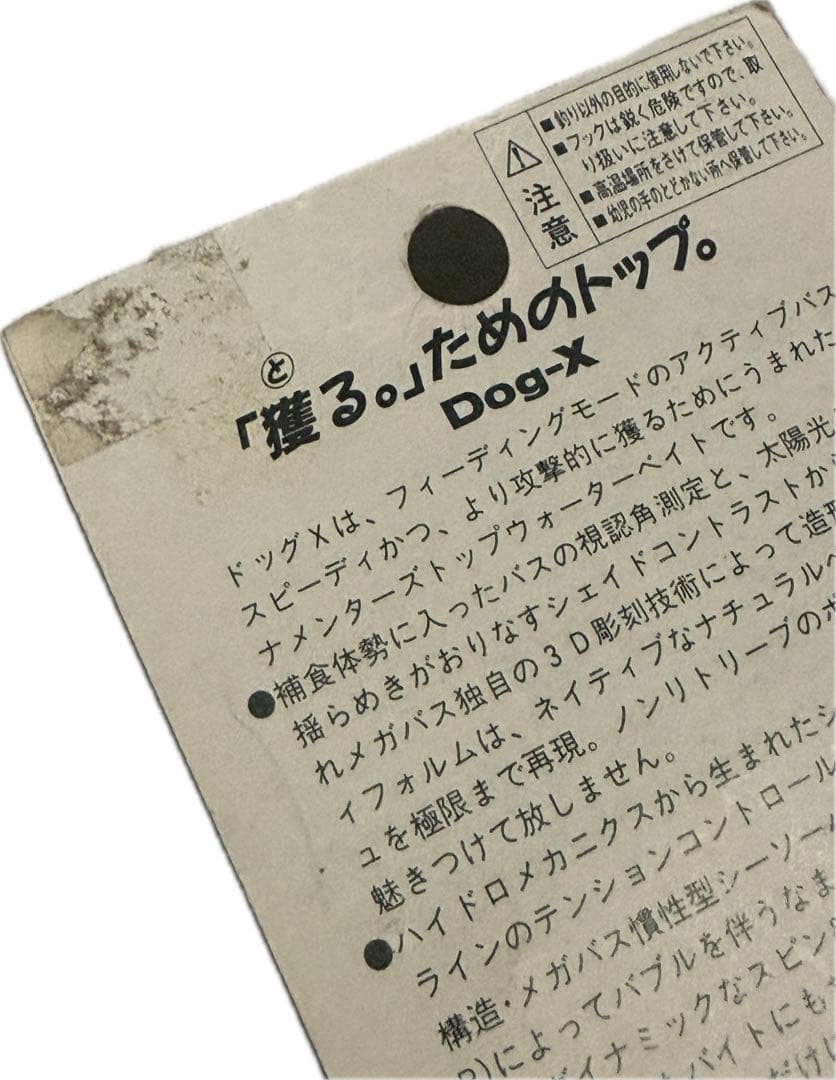 注意
■釣り以外の目的に使用しないで下さい。
■フックは鋭く危険ですので、取
り扱いに注意して下さい。
■高温場所をさけて保管して下さい。
■幼児の手のとどかない所へ保管して下さい。
と
「獲る。」ためのトップ。
Dog-X
ドッグXは、フィーディングモードのアクティブバス
スピーディかつ、より攻撃的に獲るためにうまれた
ナメンターズトップウォーターベイトです。
●補食体勢に入ったバスの視認角測定と、太陽光
揺らめきがおりなすシェイドコントラストか
れメガバス独自の3D彫刻技術によって造形
ィフォルムは、ネイティブなナチュラルベ
ュを極限まで再現。ノンリトリーブのポ
魅きつけて放しません。
●ハイドロメカニクスから生まれたシ
ラインのテンションコントロール
構造・メガバス慣性型シーソー
によってバブルを伴うなま
イナミックなスピン
バイトにも
だけ